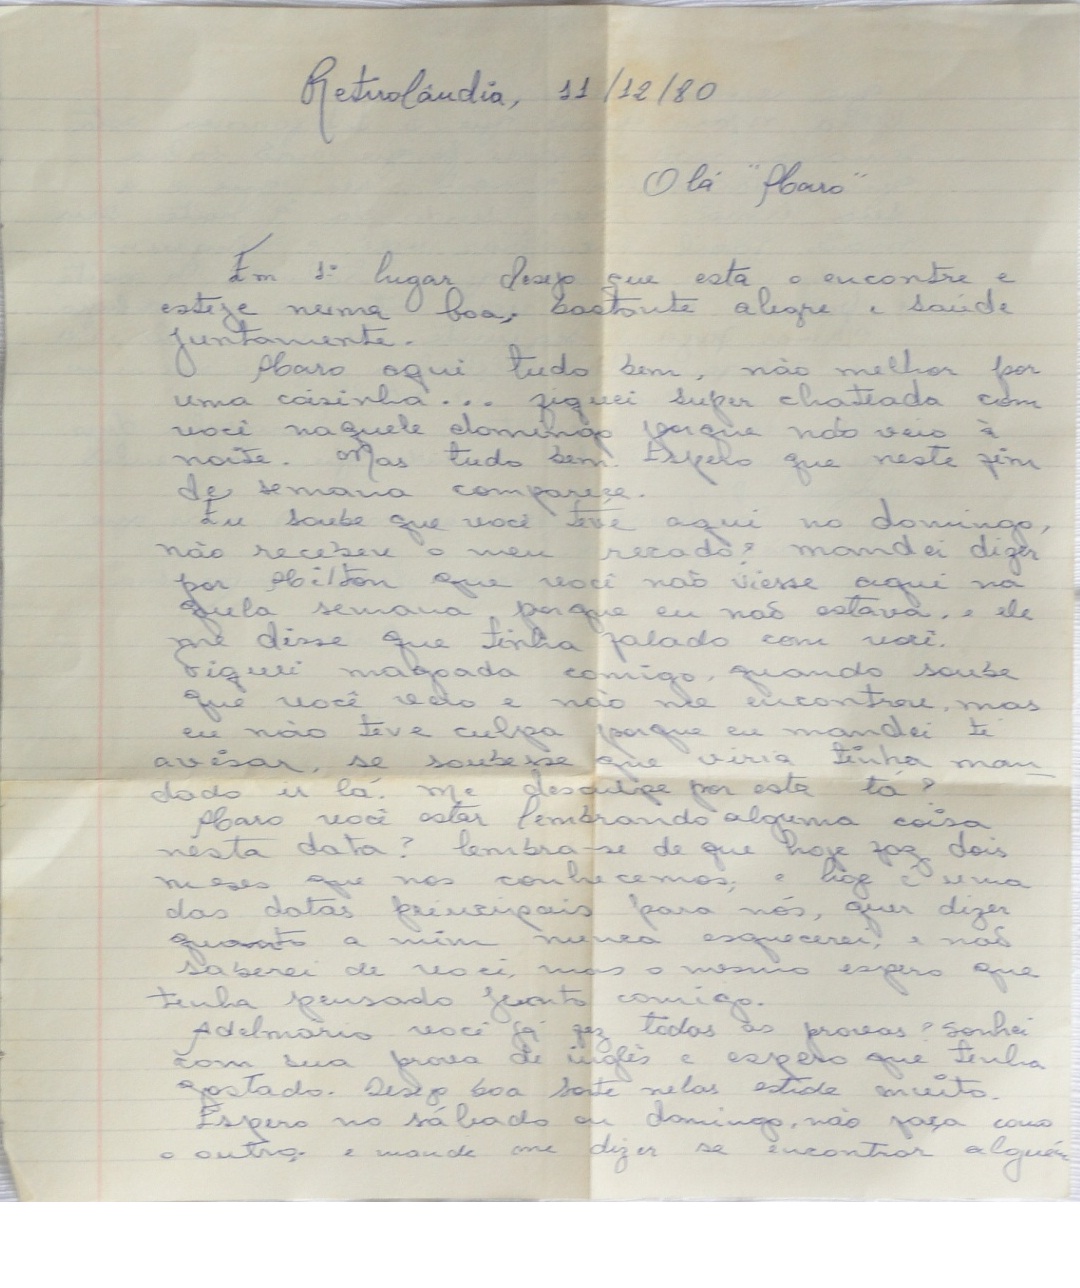 Retirolândia, 11/12/80
Olá "Maro"
Em 1º lugar desejo que esta o encontre e
esteje numa boa, bastante alegre e saúde
juntamente.
Maro aqui tudo bem, não melhor por
uma coisinha... fiquei super chateada com
você naquele domingo porque não veio à
noite. Mas tudo bem. Espero que neste fim
de semana compareçe.
Eu soube que você teve aqui no domingo,
não recebeu o meu recado? mandei dizer
por Milton que você não viesse aqui na
quela semana, porque eu não estava, e ele
me disse que tinha falado com você.
Fiquei magoada comigo, quando soube
que você veio e não me encontrou, mas
eu não teve culpa porque eu mandei ti
avisar, se soubesse que viria tinha man_
dado ir lá. Me desculpe por esta tá?
Maro você estar lembrando alguma coisa
nesta data? lembra-se de que hoje faz dois
meses que nos conhecemos, e hoje é uma
das datas principais para nós, quer dizer
quanto a mim nunca esquecerei, e não
saberei de você, mas o mesmo espero que
tenha pensado junto comigo.
Adelmário você já fez todas as provas? Sonhei
com sua prova de inglês e espero que tenha
gostado. Desejo boa sorte nelas estude muito.
Espero no sábado ou domingo, não faça como
o outro. e mande me dizer se encontrar alguém